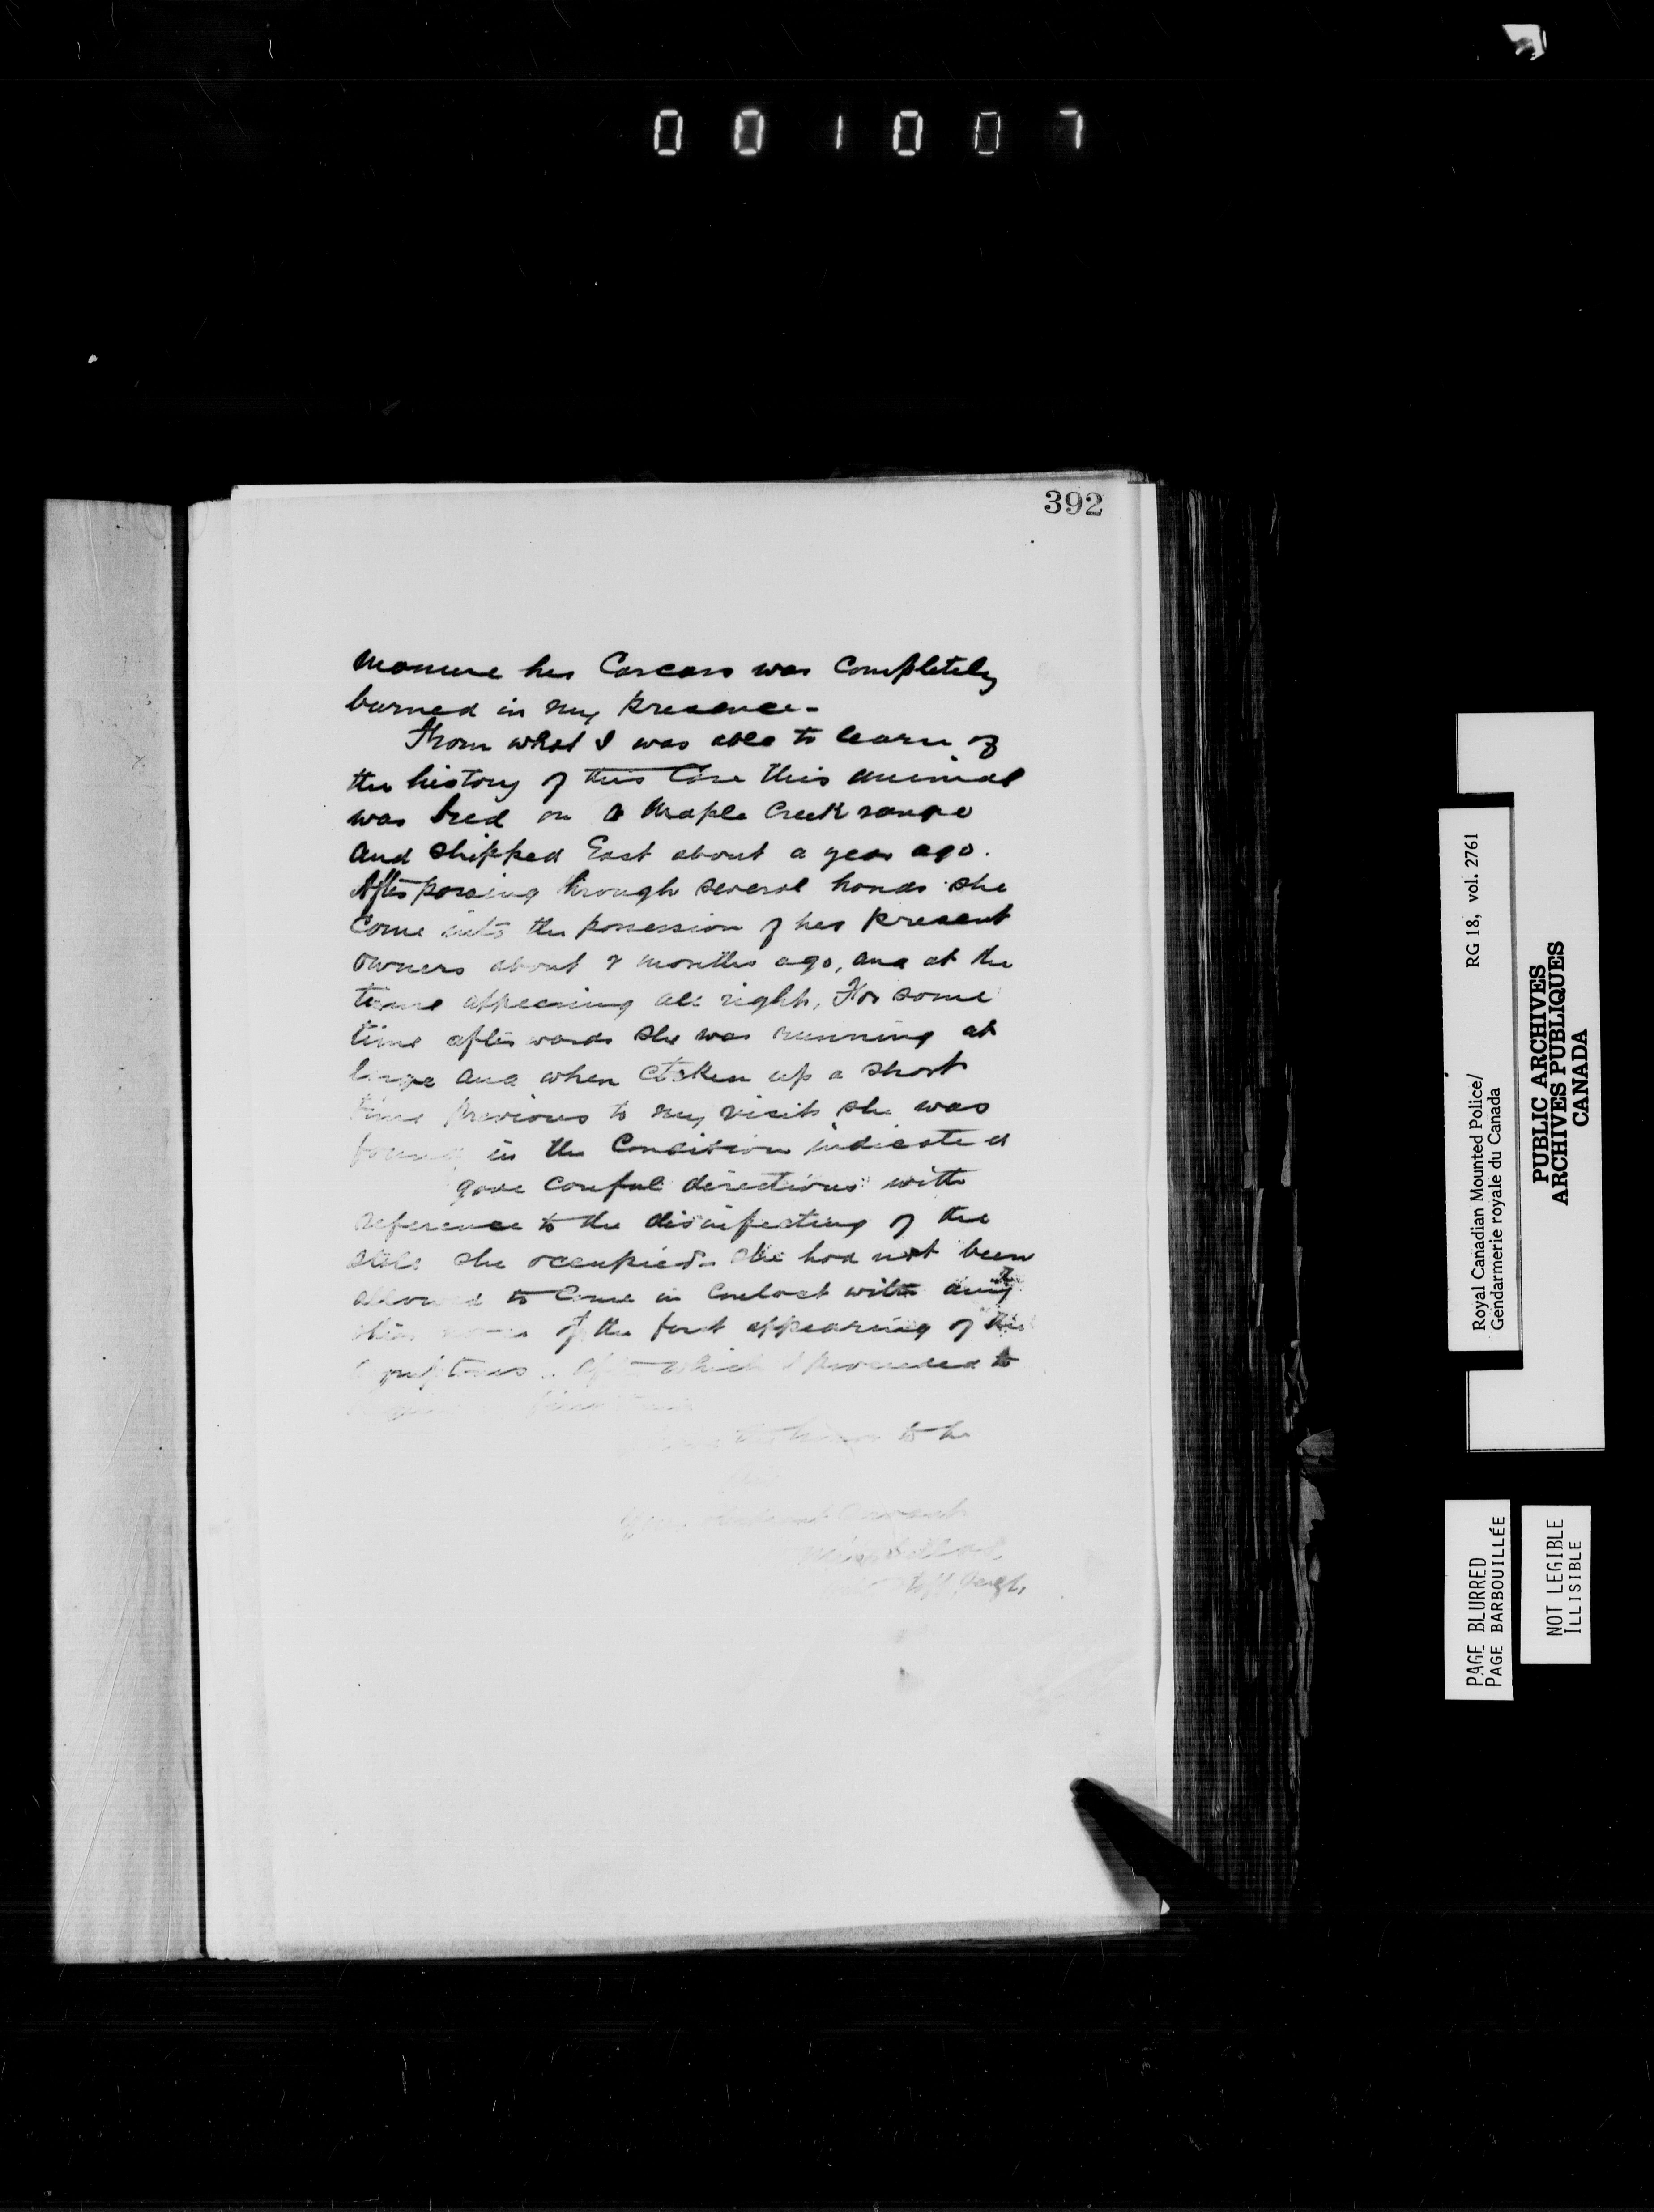 001007
392
manure her Carcass was Completely
burned in my presence -
From what I was able to learn of
the history of this Case this animal
was bred on a Maple Creek range
and shipped East about a year ago.
After passing through several hands she
Come into the possession of her present
owners about months ago, and at the
time appearing all right, For some
time afterwards she was running at
large and when taken up a short
time previous to my visit she was
found in the Condition indicated
gave careful directions with
reference to the disinfecting of the
stall she occupied - She had not been
allowed to Come in Contact with any
of the first appearing of the
symptoms - After which I proceeded to
the honor to be
Sir
Your Obedient Servant
Staff Sergt.
Royal Canadian Mounted Police/
Gendarmerie royale du Canada
RG 18, vol. 2761
PUBLIC ARCHIVES
ARCHIVES PUBLIQUES
CANADA
PAGE BLURRED
PAGE BARBOUILLÉE
NOT LEGIBLE
ILLISIBLE